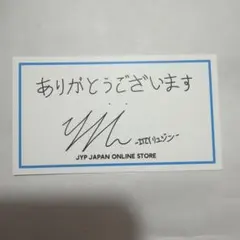 ありがとうございます
リュジン
JYP JAPAN ONLINE STORE